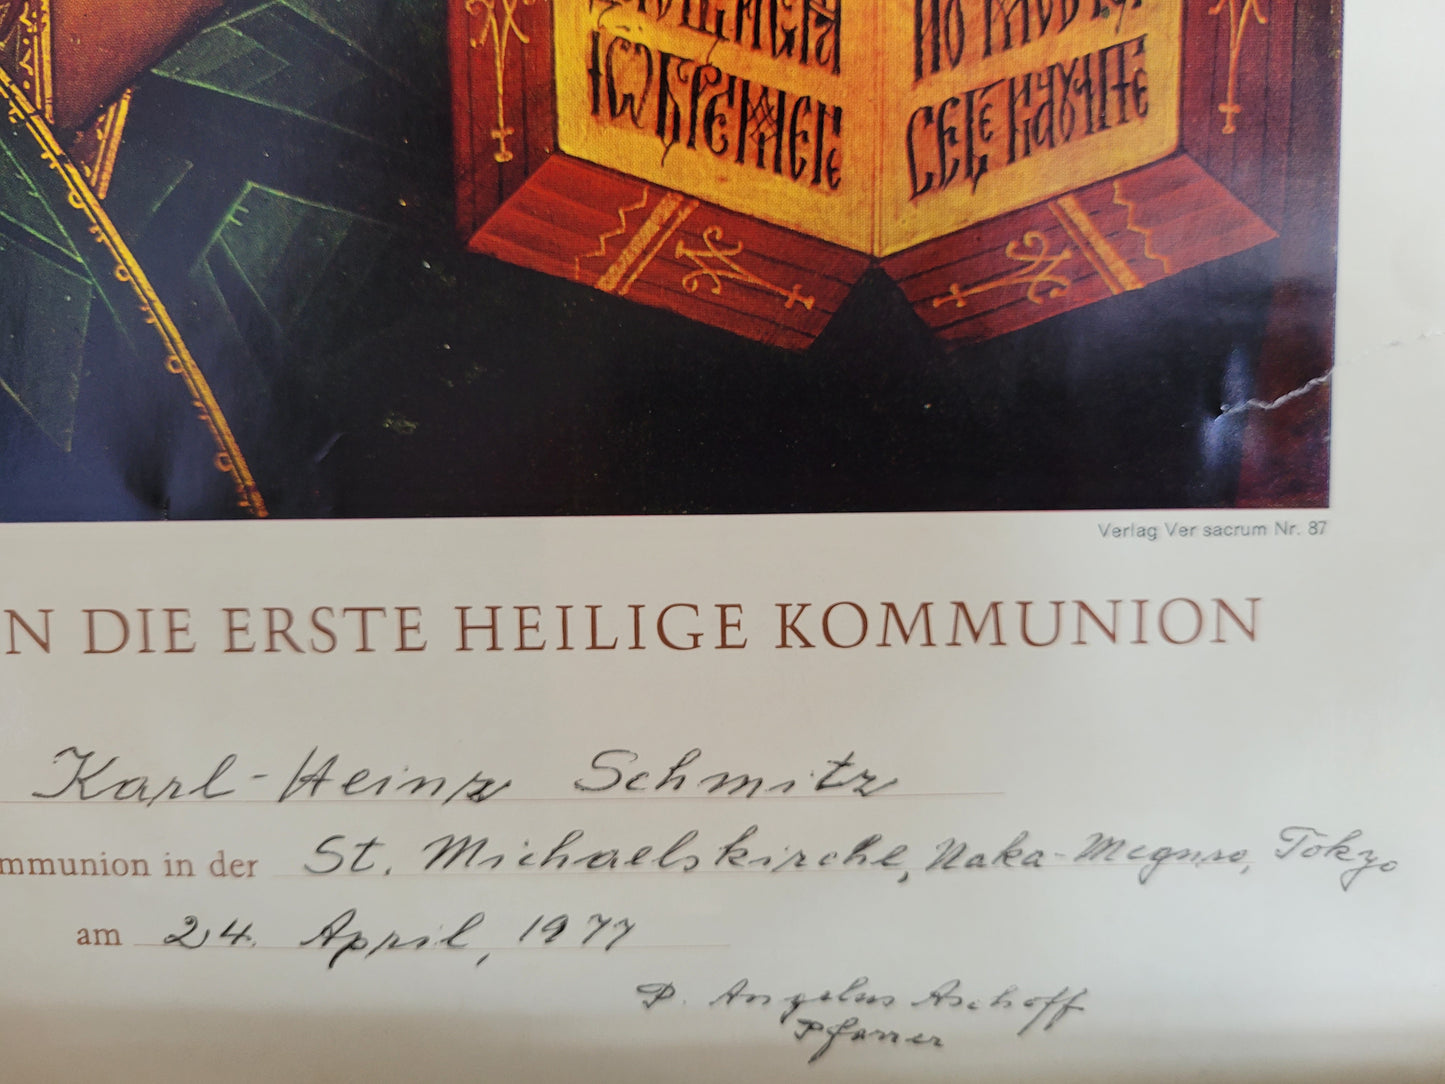 ІѠБРЕМЕНЕ
СЕБЕ НАУЧИТЕ
Verlag Ver sacrum Nr. 87
N DIE ERSTE HEILIGE KOMMUNION
Karl-Heinz Schmitz
mmunion in der St. Michaelskirche, Naka-Meguro, Tōkyo
am 24. April, 1977
P. Angelus Aschoff
Pfarrer